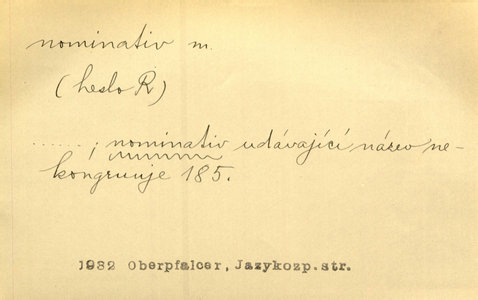 nominativ m.
(heslo R)
......; nominativ udávající název ne-
kongruuje 185.
1932 Oberpfalcer, Jazykozp. str.